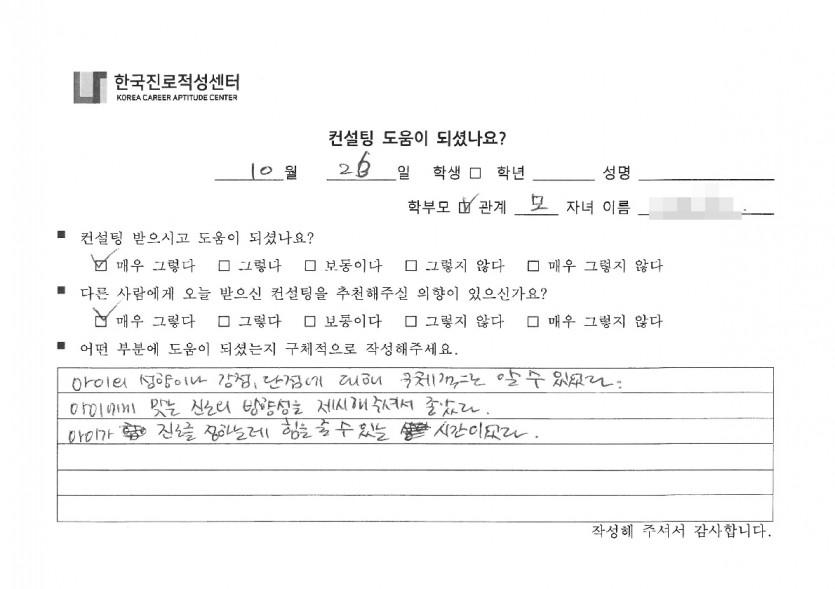 한국진로적성센터
KOREA CAREER APTITUDE CENTER
컨설팅 도움이 되셨나요?
10 월 26 일 학생 □ 학년 성명
학부모 ☑ 관계 모 자녀 이름
■ 컨설팅 받으시고 도움이 되셨나요?
☑ 매우 그렇다 □ 그렇다 □ 보통이다 □ 그렇지 않다 □ 매우 그렇지 않다
■ 다른 사람에게 오늘 받으신 컨설팅을 추천해주실 의향이 있으신가요?
☑ 매우 그렇다 □ 그렇다 □ 보통이다 □ 그렇지 않다 □ 매우 그렇지 않다
■ 어떤 부분에 도움이 되셨는지 구체적으로 작성해주세요.
아이의 성향이나 강점, 단점에 대해 구체적으로 알 수 있었다.
아이에게 맞는 진로의 방향성을 제시해주셔서 좋았다.
아이가 진로를 정하는데 힘을 줄 수 있는 시간이었다.
작성해 주셔서 감사합니다.